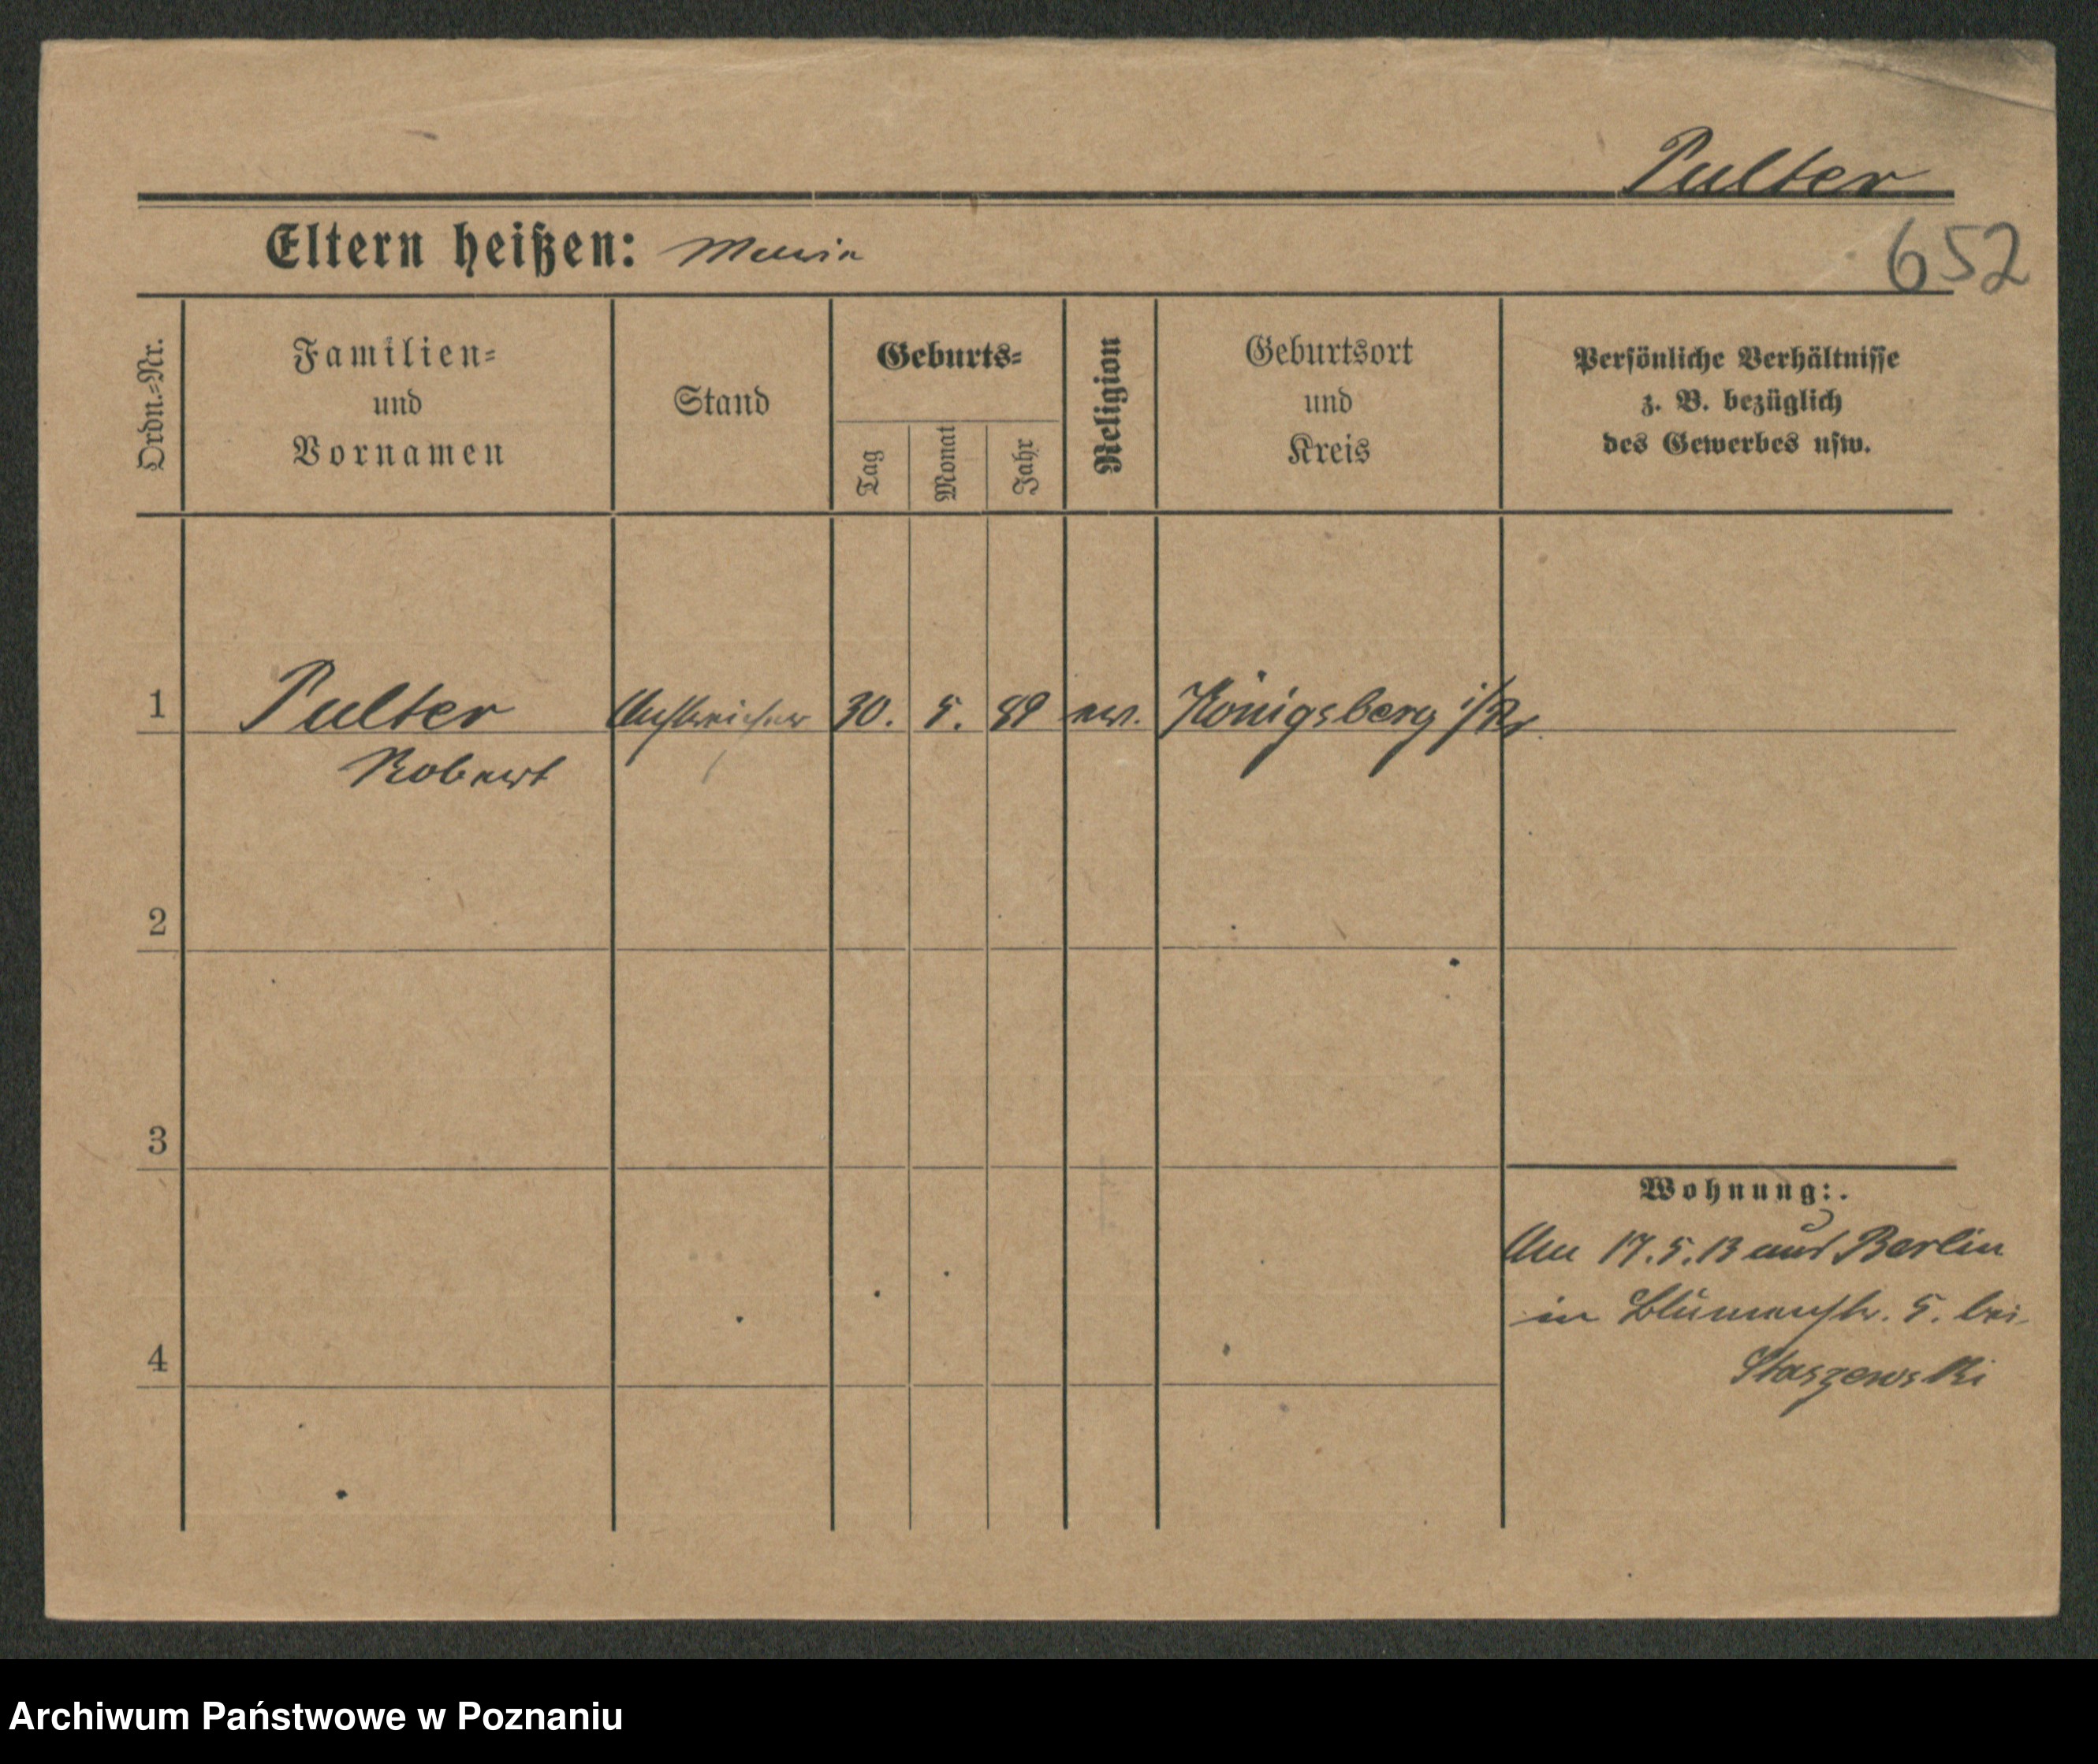 Pulter
Eltern heißen: Maria
652
Ordn.=Nr.
Familien=
und
Vornamen
Stand
Geburts=
Tag
Monat
Jahr
Religion
Geburtsort
und
Kreis
Persönliche Verhältnisse
z. B. bezüglich
des Gewerbes usw.
1 Pulter Anstreicher 30. 5. 89 ev. Königsberg i/Pr.
Robert
2
3
Wohnung:.
Am 17.5.13 aus Berlin
in Blumenstr. 5. bei
Staszewski
4
Archiwum Państwowe w Poznaniu